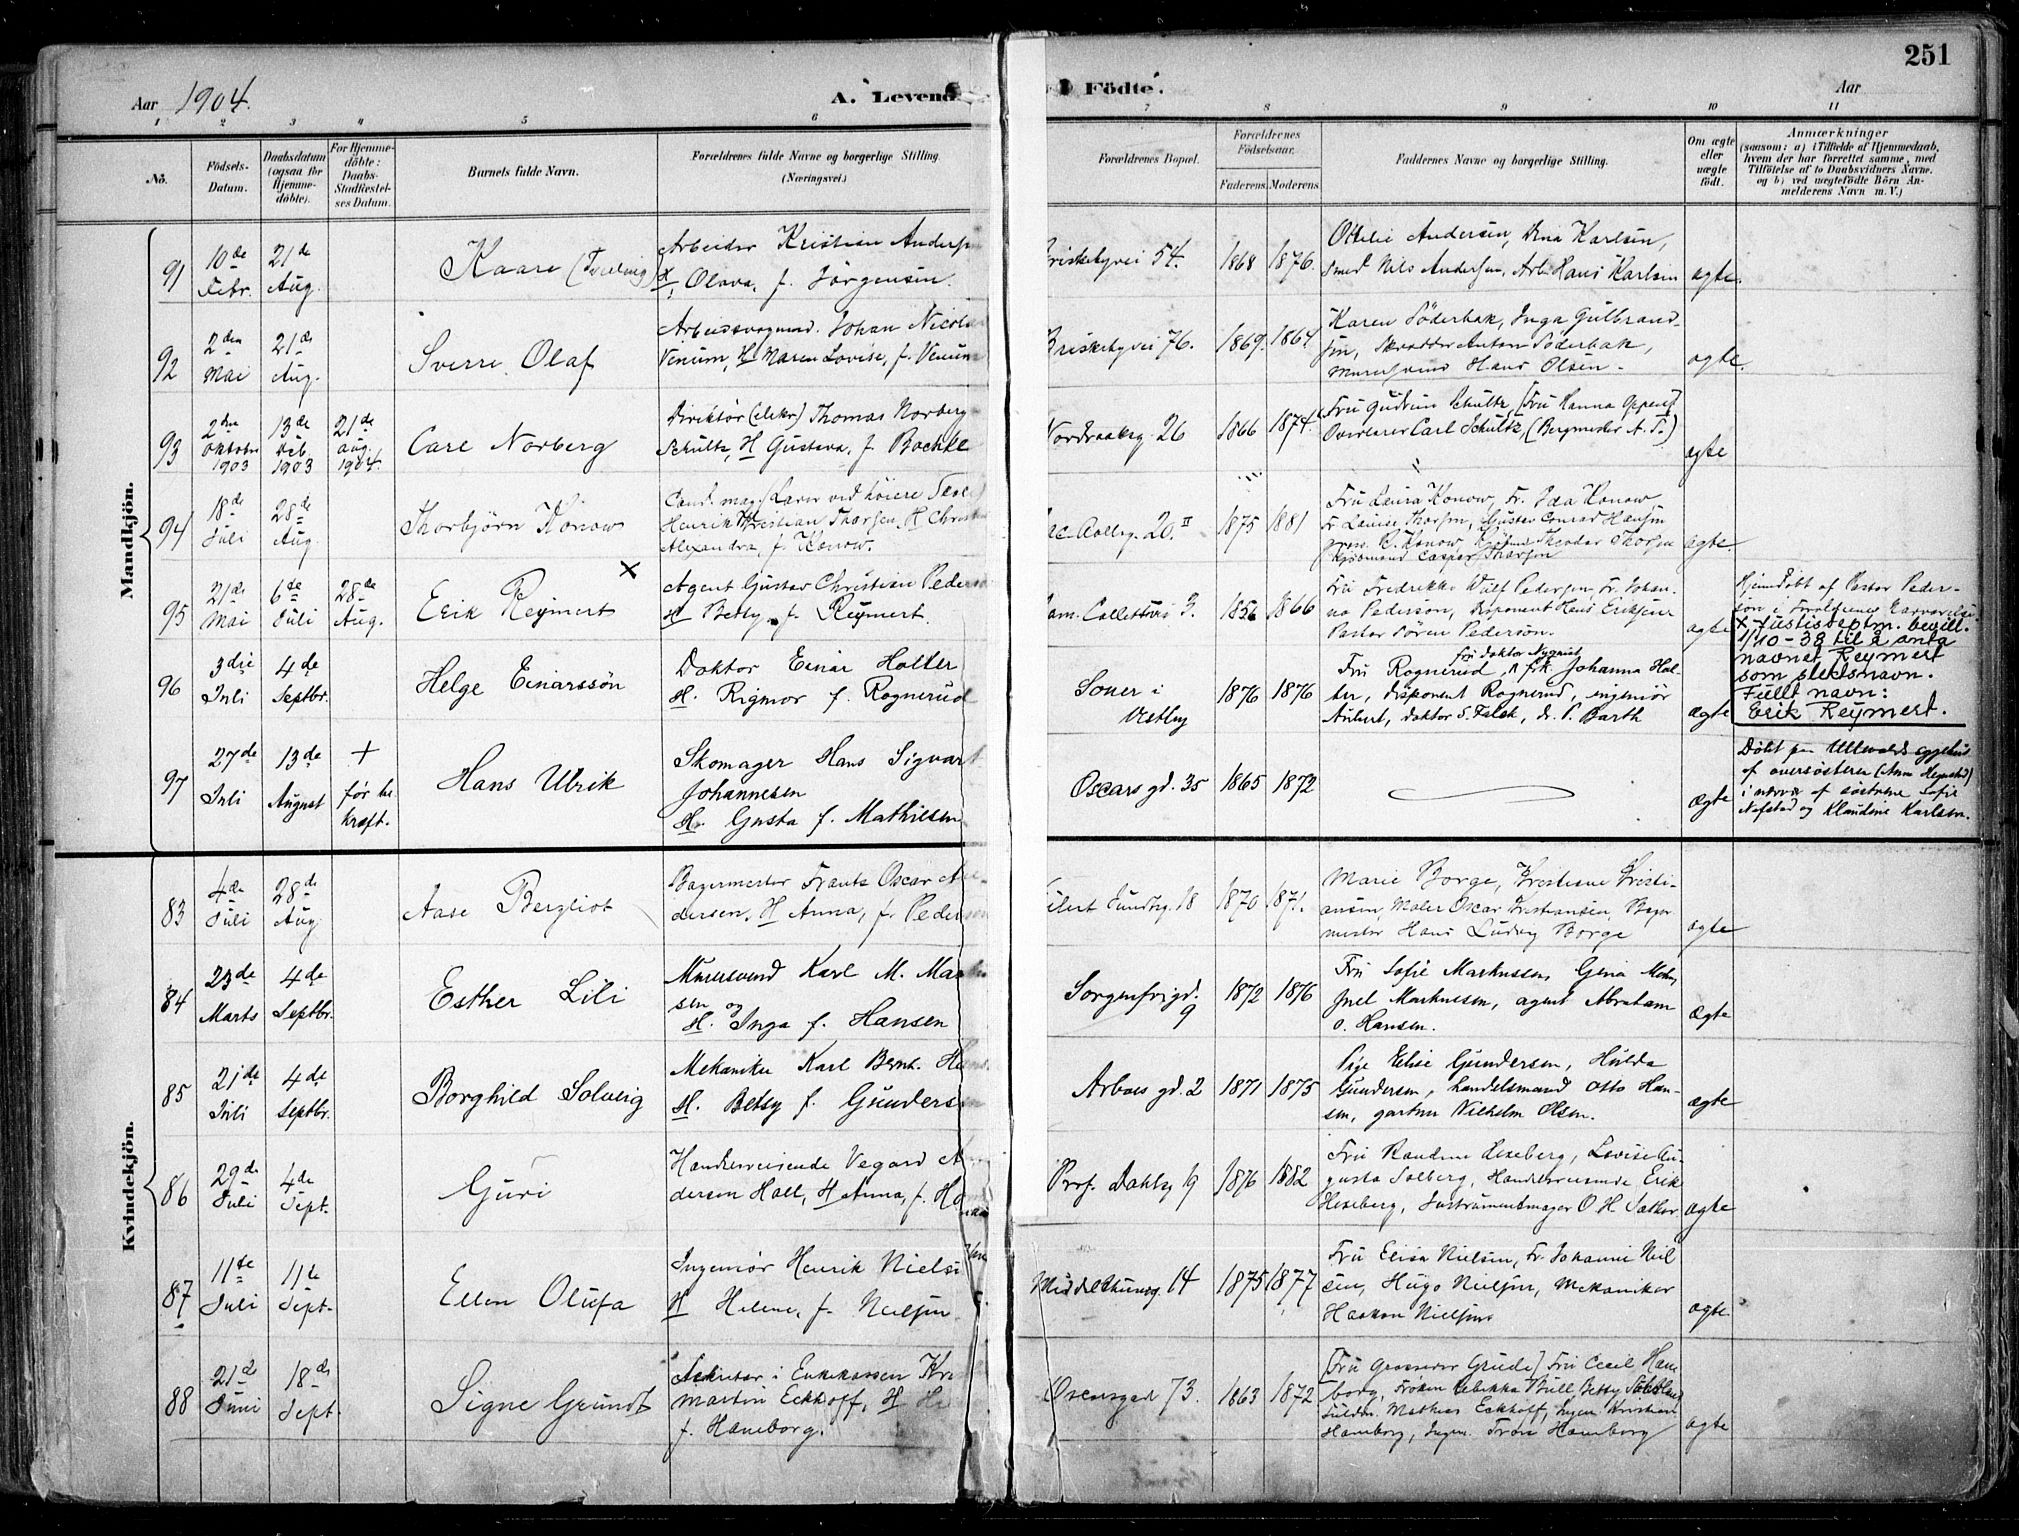 251
Aar 1904.
A. Levend Födte.
Aar
1 2 3 4 5 6 7 8 9 10 11
No.
Födsels-
Datum.
Daabsdatum
(ogsaa for
Hjemme-
döbte).
For Hjemme-
döbte:
Daabs-
Stadfæstel-
ses Datum.
Barnets fulde Navn.
Forældrenes fulde Navne og borgerlige Stilling.
(Næringsvei.)
Forældrenes Bopæl.
Forældrenes
Födselsaar.
Faderens. Moderens.
Faddernes Navne og borgerlige Stilling.
Om ægte
eller
uægte
födt.
Anmærkninger
(saasom: a) i Tilfælde af Hjemmedaab,
hvem der har forrettet samme, med
Tilföielse af to Daabsvidners Navne,
og b) ved uægtefödte Börn An-
melderens Navn m. V.)
Mandkjön.
91
10de
Febr.
21de
Aug.
Kaare (Tvilling)
Arbeider Kristian Anders
H. Olava, f. Jörgensen.
54.
1868 1876.
Ottilie Andersen, Dina Karlsen,
Smed Nils Andersen, Arb. Hans Karlsen
ægte.
92
2den
Mai
21de
Aug.
Sverre Olaf
Arbeidsvogmand. Johan Nicola
Venum, H Maren Lovise, f. Venum
Briskebyvei 76.
1869. 1864
Karen Söderbak, Inga Gulbrand-
sen, Skrædder Anton Söderbak,
Murersvend Hans Olsen.
ægte.
93
2den
Oktober
1903
13de
Dcb.
1903
21de
Aug.
1904.
Carl Norberg
Direktör (elekr) Thomas Norberg
Schultz, H Gustava, f. Bachke
Nordraaksg. 26
1866 1874.
Fru Gudrun Schultz, [Fru Hanna
Overlærer Carl Schultz, (Bergmester A. )
ægte
94
18de
Juli
28de
Aug.
Thorbjörn Konow
Cand. mag. Lærer ved höiere
Henrik Christian Thorsen, H
Alexandra, f. Konow.
20 II
1875 1881
Fru Laura Konow, Fr. Konow
Fr Lauise Thorsen, Gustav Conrad Hansen
Konow, Theodor Thorsen
Kjöbmand Casper Thorsen
ægte.
95
21de
Mai
6de
Juli
28de
Aug.
Erik Reymert X
Agent Gustav Christian Peders
H Betty, f. Reymert.
Cam. Collettsvei 3.
1856 1866
Fru Fredrikke Wulf Pedersen, Fr. Johan-
na Pederson, Disponent Hans Eriksen
Pastor Sören Pederson.
ægte
Hjemdöbt af Pastor Peder-
son i Forældrenes Nærværelse.
X Justisdeptm. bevill.
1/10-38 til å anta
navnet Reymert
som slektsnavn.
Fullt navn:
Erik Reymert.
96
3die
Juli
4de
Septbr.
Helge Einarssön
Doktor Einar Holter
H. Rigmor f. Rognerud
Soner i
Vestby
1876 1876
fru Doktor Nyquist
Fru Rognerud, frk. Johanna Hol-
ter, disponent Rognerud, ingeniör
Aubert, doktor S. Falck, dr. P. Barth
ægte
97
27de
Juli
13de
August
+
før be
kræft.
Hans Ulrik
Skomager Hans Sigvart
Johannesen
H. Gusta f. Mathiesen
Oscars gd. 35
1865 1872
ægte
Döbt paa Ullevaals sygehus
af oversösteren (Anna )
i nærvær af söstrene Sofie
Nafstad og Klaudine Karlsen.
Kvindekjön.
83
4de
Juli
28de
Aug
Aase Bergliot
Bagermester Frantz Oscar An-
dersen, H Anna, f. Pedersen
Eilert Sundtsg. 18
1870 1871.
Marie Borge, Kristiane Kristi-
ansen, Maler Oscar Kristiansen, Bager
mester Hans Ludvig Borge
ægte
84
23de
Marts
4de
Septbr.
Esther Lili
Murersvend Karl M. Mar
sen og
H. Inga f. Hansen
Sorgenfrigd.
9
1872 1876
Fru Sofie Markussen, Gina
Juel Markussen, agent Abraham
O. Hansen.
Ægte
85
21de
Juli
4de
Septbr.
Borghild Solveig
Mekaniker Karl Bernt. Hans
H. Betsy f. Gundersen
Arbos gd. 2
1871 1875
Pige Elise Gundersen, Hulda
Gundersen, handelsmand Otto Han-
sen, gartner Vilhelm Olsen.
ægte
86
29de
Juli
4de
Sept.
Guri
Handelsreisende Vegard An
dersen Hall, H Anna, f. Ha
Prof. Dahlsg 19
1876 1882
Fru Randine Hexeberg, Lovise Au-
gusta Solberg, Handelsreisende Erik
Hexeberg, Instrumentmager O. H. Sæther
ægte
87
11te
Juli
11te
Sept.
Ellen Olufa
Ingeniör Henrik Niels
H Helene, f. Neilsen
Middelthunsg. 14
1875 1877
Fru Elisa Nielsen, Fr. Johanne Neil
sen, Hugo Nielsen, Mekaniker
Haakon Nielsen
ægte.
88
21de
Juni
18de
Sept.
Signe Grundt
Sekretær i Enkekassen Kr
Martin Eckhoff, H
f. Hamborg.
Oscarsgad 73.
1863 1872
[Fru Grosserer Grude] Fru Cecil Ham
borg, Fröken Rebekka Bull, Betty
Mathias Eckhoff, Ingen. Kristian
Hamborg, Ingen. Hamborg
ægte